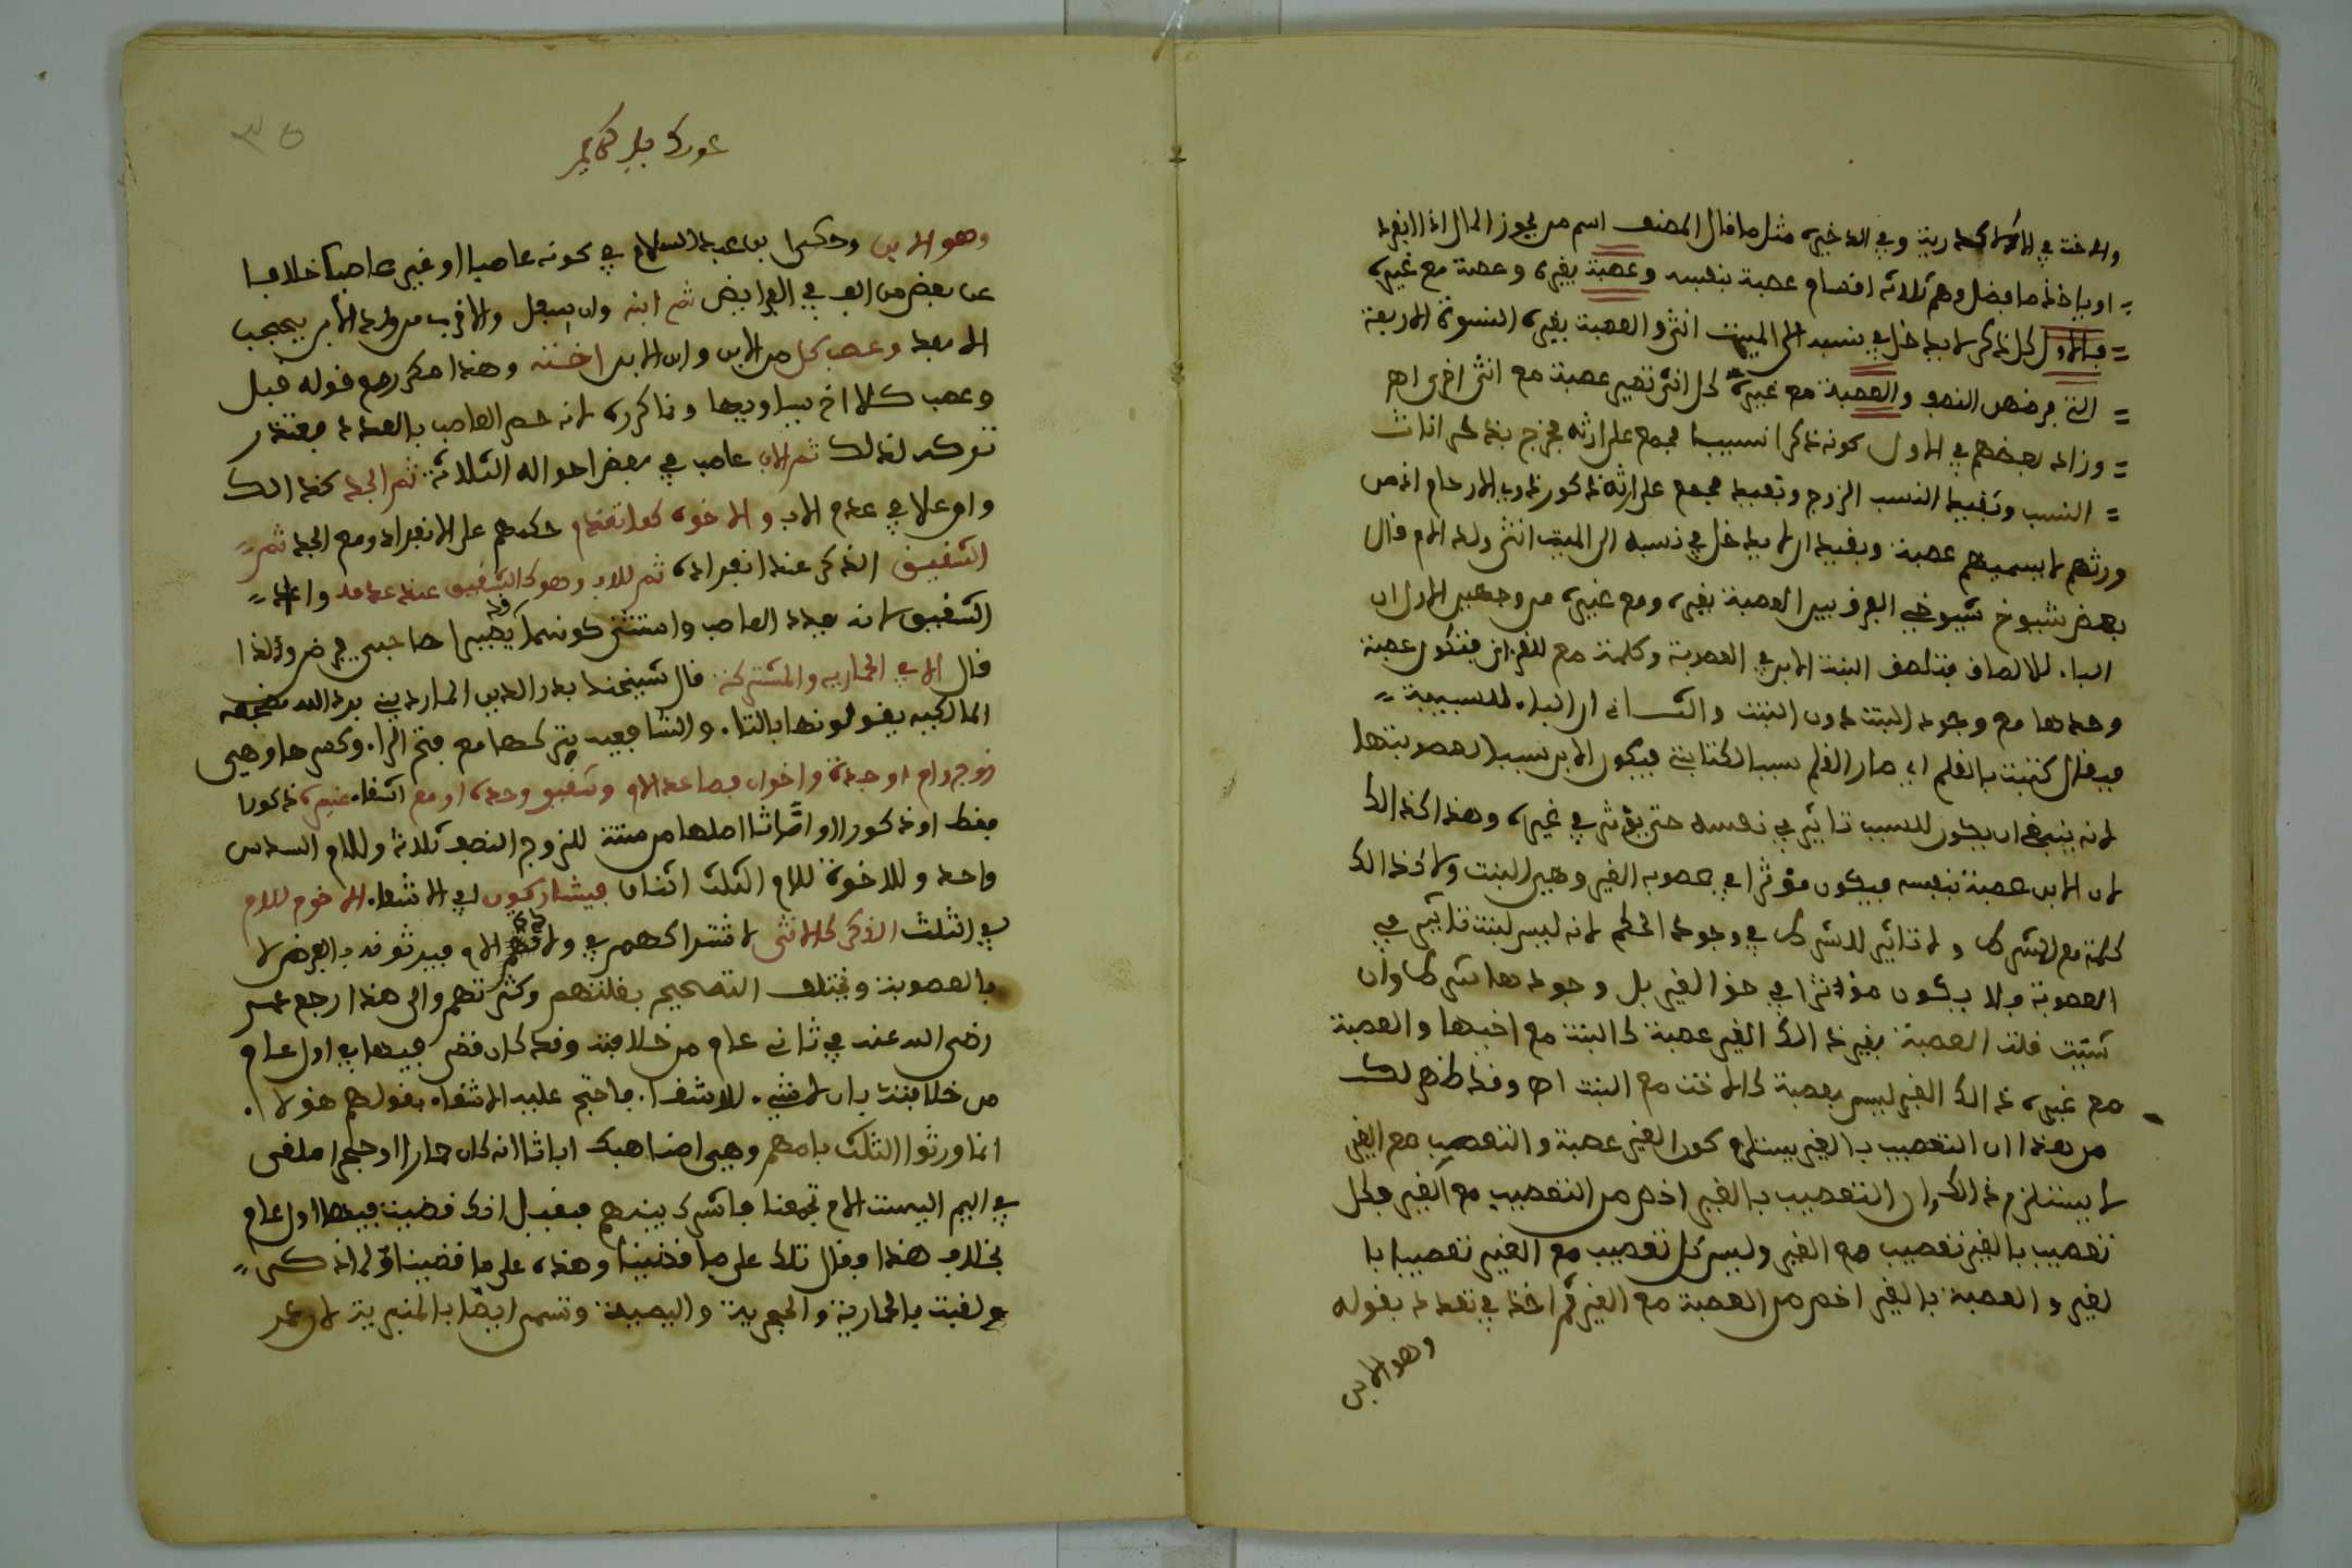 والاخت في الاكدرية وفي الاخير مثل ما قال المصنف اسم من يحوز المال اذا انفرد
او ياخذ ما فضل وهم ثلاثة اقسام عصبة بنفسه وعصبة بغيره وعصبة مع غيره
فالاول كل ذكر لا يدخل في نسبه الى الميت انثى والعصبة بغيره النسوة الاربعة
التي فرضهن النصف والعصبة مع غيره كل انثى تصير عصبة مع انثى اخرى اهـ
وزاد بعضهم في الاول كونه ذكرا نسيبا مجمع على ارثه فخرج بذكر اناث
النسب وبقيد النسب الزوج وبقيد مجمع على ارثه ذكور ذوي الارحام اذ من
ورثهم لا يسميهم عصبة وبقيد ان لا يدخل في نسبه الى الميت انثى ولد الام قال
بعض شيوخ شيوخي الفرق بين العصبة بغيره ومع غيره من وجهين الاول ان
الباء للالصاق فتلصق البنت الابن في العصوبة وكلمة مع للقران فتكون عصبة
وحدها مع وجود البنت دون البنت والثاني ان الباء للسببية
فيقال كتبت بالقلم اي صار القلم سبب الكتابة فيكون الابن سببا لعصوبتها
لانه ينبغي ان يكون للسبب تاثير في نفسه حتى يؤثر في غيره وهذا كذلك
لان الابن عصبة بنفسه فيكون مؤثرا في عصوبة الغير وهي البنت ولا كذلك
كلمة مع للشرط ولا تاثير للشرط في وجود الحكم لانه ليس لبنت تاثير في
العصوبة فلا يكون مؤثرا في حق الغير بل وجودها شرط وان
شئت قلت العصبة بغيره ذلك الغير عصبة كالبنت مع اخيها والعصبة
مع غيره ذلك الغير ليس بعصبة كالاخت مع البنت اهـ وقد ظهر لك
من هذا ان التعصيب بالغير يستلزم كون الغير عصبة والتعصيب مع الغير
لا يستلزم ذلك وان التعصيب بالغير اخص من التعصيب مع الغير فكل
تعصيب بالغير تعصيب مع الغير وليس كل تعصيب مع الغير تعصيبا با
لغير والعصبة بالغير اخص من العصبة مع الغير ثم اخذ في تعداد بقوله
وهو الابن
وهو الابن وحكى ابن عبد السلام في كونه عاصبا او غير عاصب خلافا
عن بعض من الف في الفرايض ثم ابنه وان سفل والاقرب من ولد الابن يحجب
الابعد وعصب كل من الابن وابن الابن اخته وهذا مكرر مع قوله قبل
وعصب كلا اخ يساويها وذا كرره لانه حصر العاصب بالعدد فيفتقر
لذلك ثم الاب عاصب في بعض احواله الثلاثة ثم الجد كذلك
وان علا في عدم الاب والاخوة كما تقدم حكمهم على الانفراد ومع الجد ثم
الشقيق الذكر عند انفراده ثم للاب وهو كالشقيق عند عدمه
الشقيق لانه بعدد العاصب واستثنى كونهما صاحبي فرض ولذا
قال الا في الحمارية والمشتركة قال شيخنا بدر الدين المارديني برد الله مضجعه
المالكية يقولونها بالتاء والشافعية بتركها مع فتح الراء وكسرها وهي
زوج وام او جدة واخوان فصاعدا لام وشقيق وحده او مع اشقاء غيره ذكورا
فقط او ذكورا او اناثا اصلها من ستة للزوج النصف ثلاثة وللام السدس
واحد وللاخوة للام الثلث اثنان فيشاركون اي الاشقاء الاخوة للام
في الثلث الذكر كالانثى لاشتراكهم في ولادة الام فيرثونه بالفرض لا
بالعصوبة ويختلف التصحيح بقلتهم وكثرتهم والى هذا رجع عمر
رضي الله عنه في ثاني عام من خلافته وقد كان قضى فيها في اول عام
من خلافته بان لا شيء للاشقاء فاحتج عليه الاشقاء بقولهم هؤلاء
انما ورثوا الثلث بامهم وهي امنا هب ابانا انه كان حمارا او حجرا ملقى
في اليم اليست الام تجمعنا فاشرك بينهم فقيل له انك قضيت فيها اول عام
بخلاف هذا فقال تلك على ما قضينا وهذه على ما قضينا ولذلك
لقبت بالحمارية والحجرية واليمية وتسمى ايضا بالمنبرية لان عمر